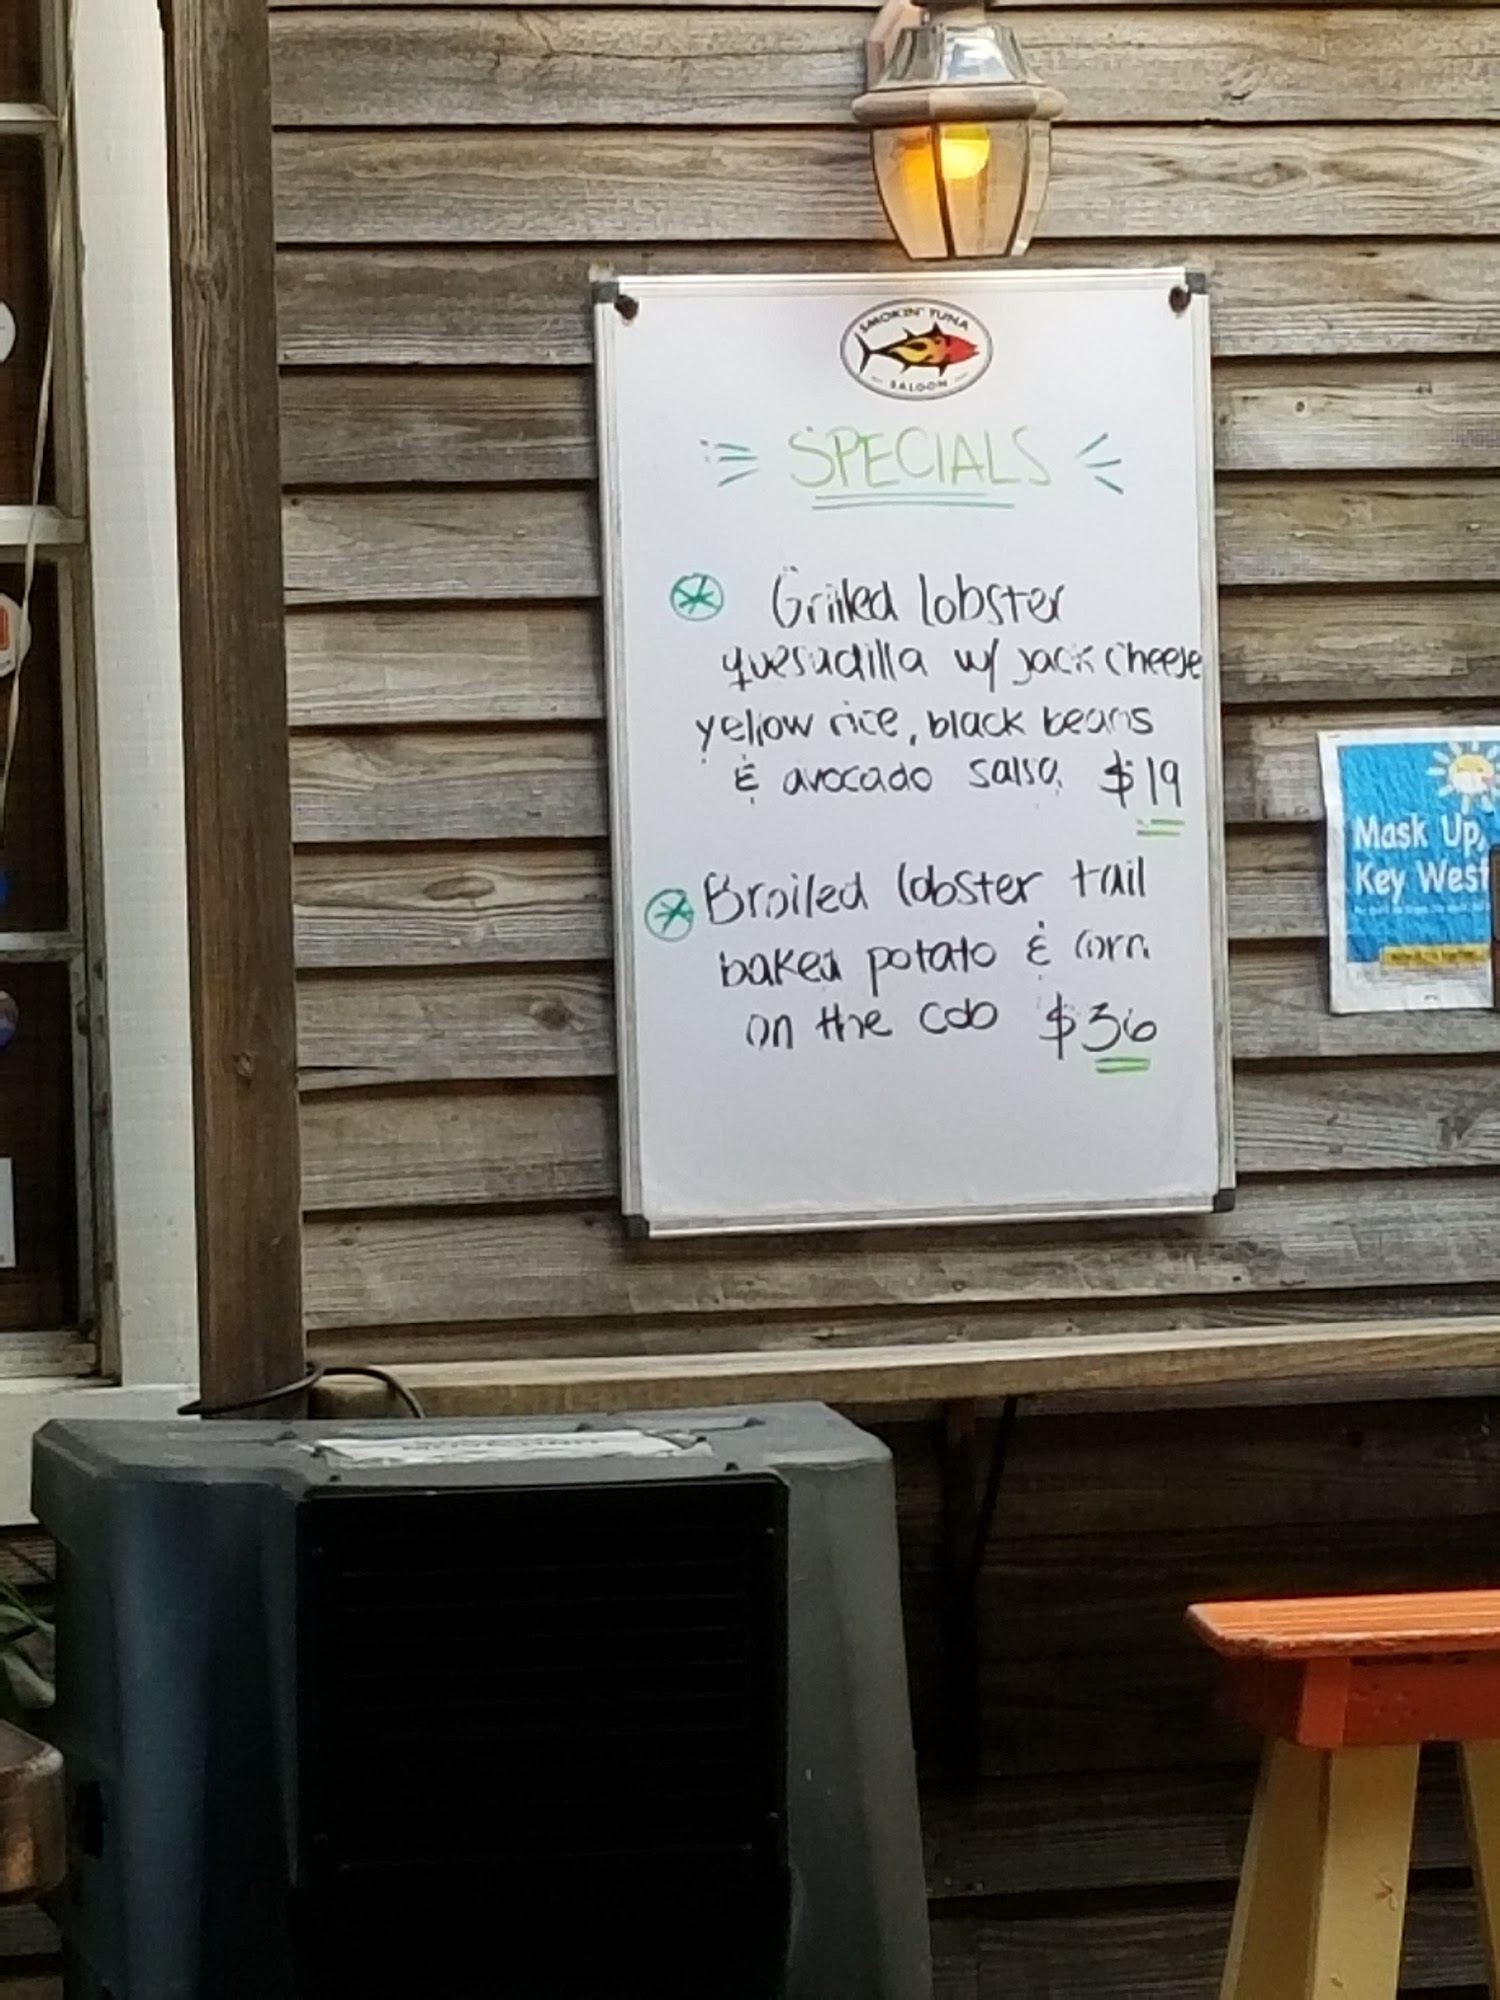 SMOKIN' TUNA
SALOON
SPECIALS
Grilled lobster
quesadilla w/ jack cheese
yellow rice, black beans
& avocado salsa $19
Broiled lobster tail
baked potato & corn
on the cob $36
Mask Up,
Key West